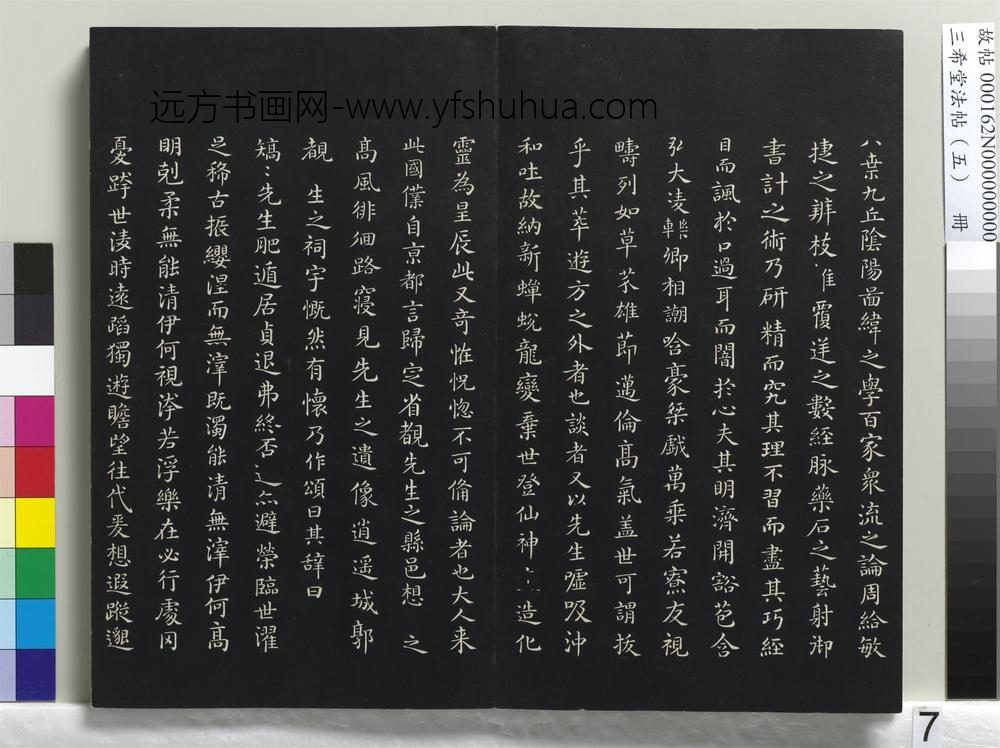 远方书画网-www.yfshuhua.com
八索九丘陰陽啚緯之學百家衆流之論周給敏
捷之辨枝准覆逆之數經脉藥石之藝射御
書計之術乃研精而究其理不習而盡其巧經
目而諷於口過耳而闇於心夫其明濟開豁苞含
弘大淩轢卿相謿哈豪桀戲萬乘若寮友視
疇列如草芥雄節邁倫髙氣盖世可謂拔
乎其萃遊方之外者也談者又以先生噓吸沖
和吐故納新蟬蛻龍變棄世登仙神造化
靈為星辰此又竒恠怳惚不可俻論者也大人来
此國僕自京都言歸定省覩先生之縣邑想之
髙風徘徊路寢見先生之遺像逍遥城郭
覩生之祠宇慨然有懷乃作頌曰其辞曰
矯〻先生肥遁居貞退弗終否避榮臨世濯
足稀古振纓涅而無滓既濁能清無滓伊何髙
明剋柔無能清伊何視汙若浮樂在必行處冈
憂跨世淩時遠蹈獨遊瞻望往代爰想遐蹤邈
故帖 000162N000000000
三希堂法帖(五) 冊
7